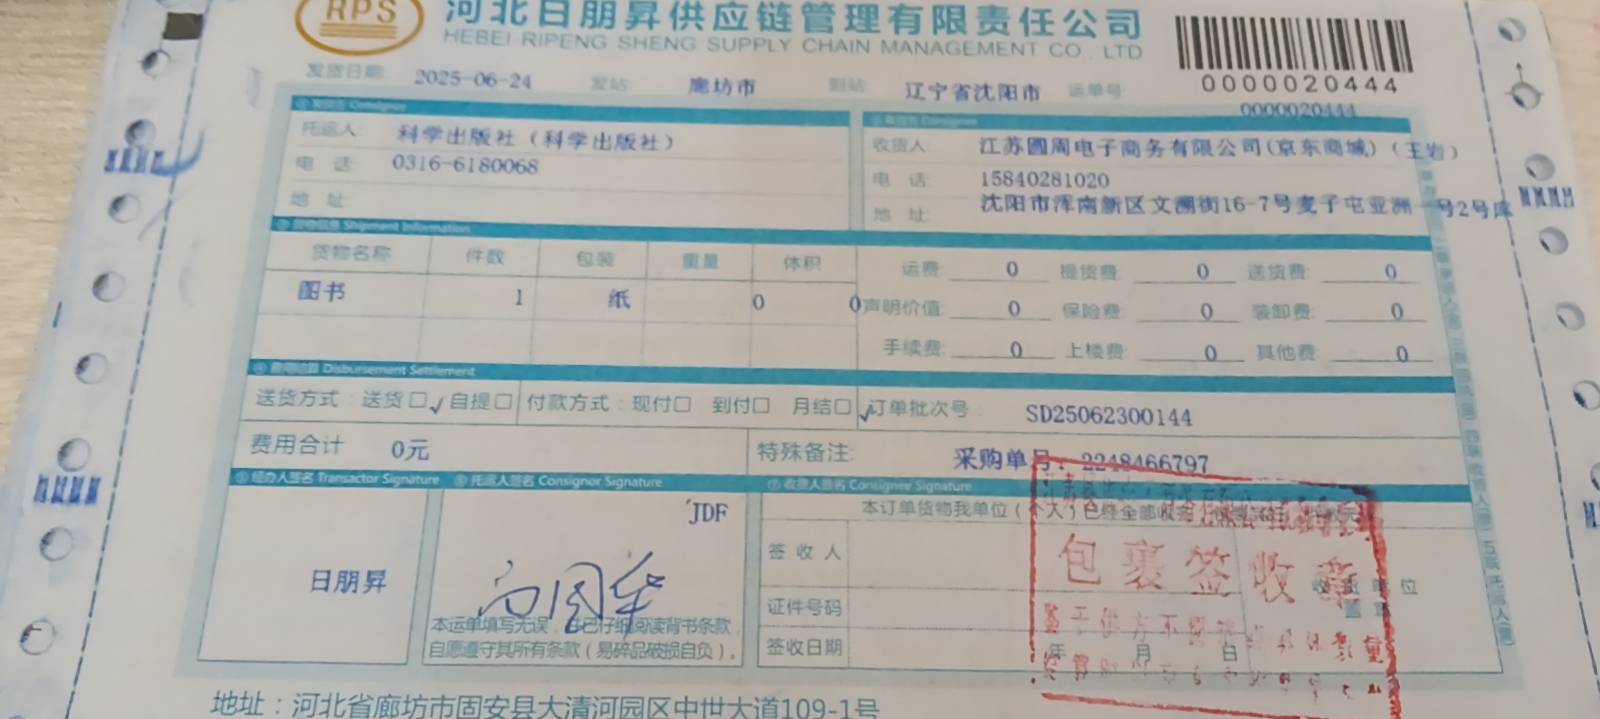 RPS 河北日朋昇供应链管理有限责任公司
HEBEI RIPENG SHENG SUPPLY CHAIN MANAGEMENT CO., LTD
0000020444
发货日期: 2025-06-24 发站: 廊坊市 到站: 辽宁省沈阳市 运单号:
0000020444
① 发货方 Consignor
托运人: 科学出版社（科学出版社）
电 话: 0316-6180068
地 址:
收货人: 江苏圆周电子商务有限公司(京东商城)（王岩）
电 话: 15840281020
地 址: 沈阳市浑南新区文溯街16-7号麦子屯亚洲一号2号库
③ 货物信息 Shipment Information
货物名称 件数 包装 重量 体积
图书 1 纸 0 0
运费: 0 提货费: 0 送货费: 0
声明价值: 0 保险费: 0 装卸费: 0
手续费: 0 上楼费: 0 其他费: 0
④ 费用结算 Disbursement Settlement
送货方式：送货☐✓自提☐ 付款方式：现付☐ 到付☐ 月结☐✓ 订单批次号： SD25062300144
费用合计 0元 特殊备注: 采购单号：2248466797
⑤ 经办人签名 Transactor Signature
日朋昇
⑥ 托运人签名 Consignor Signature
JDF
本运单填写无误，并已仔细阅读背书条款，
自愿遵守其所有条款（易碎品破损自负）。
⑦ 收货人签名 Consignee Signature
本订单货物我单位（个人）已经全部收
签 收 人
证件号码
签收日期 年 月 日
包裹签收章
地址：河北省廊坊市固安县大清河园区中世大道109-1号